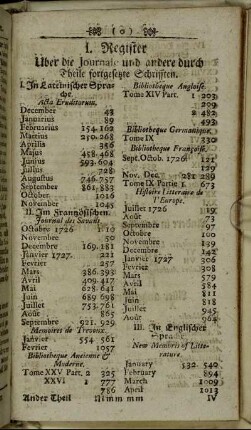 (0)
I. Register
Uber die Journale und andere durch
Theile fortgesetzte Schrifften.
I. In Lateinischer Spra-
che.
Acta Eruditorum.
December 48
Januarius 89
Februarius 154. 162
Martius 210. 268
Aprilis 356
Majus 458. 468
Junius 593. 604
Julius 728
Augustus 746. 757
September 861. 883
October 1016
November 1045
II. In Frantzösischen.
Journal des Savans.
Octobre 1726 110
November 50
December 169. 181
Janvier 1727. 221
Fevrier 257
Mars 386. 393
Avril 409. 417
Mai 628. 641
Juin 689. 698
Juillet 753. 761
Août 865
Septembre 921. 929
Memoires de Trevoux.
Janvier 554 561
Fevrier 1057
Bibliotheque Ancienne &
Moderne.
Tome XXV Part. 2 325
XXVI 1 777
786
Ander Theil
Bibliotheque Angloise.
Tome XIV Part. 1 203
209
2 482
493
Bibliotheque Germanique.
Tome IX 330
Bibliotheque Françoise.
Sept. Octob. 1726 121
129
Nov. Dec. 281 289
Tome IX Partie 1 673
Histoire Litteraire de
l'Europe.
Juillet 1726 19
Août 73
Septembre 97
Octobre 100
Novembre 139
Decembre 142
Janvier 1727 306
Fevrier 308
Mars 579
Avril 584
Mai 812
Juin 818
Juillet 945
Août 964
III. In Englischer
Sprache.
New Memoirs of Litte-
rature.
January 532. 540
February 894
March 1009
April 1013
Mmm mm IV